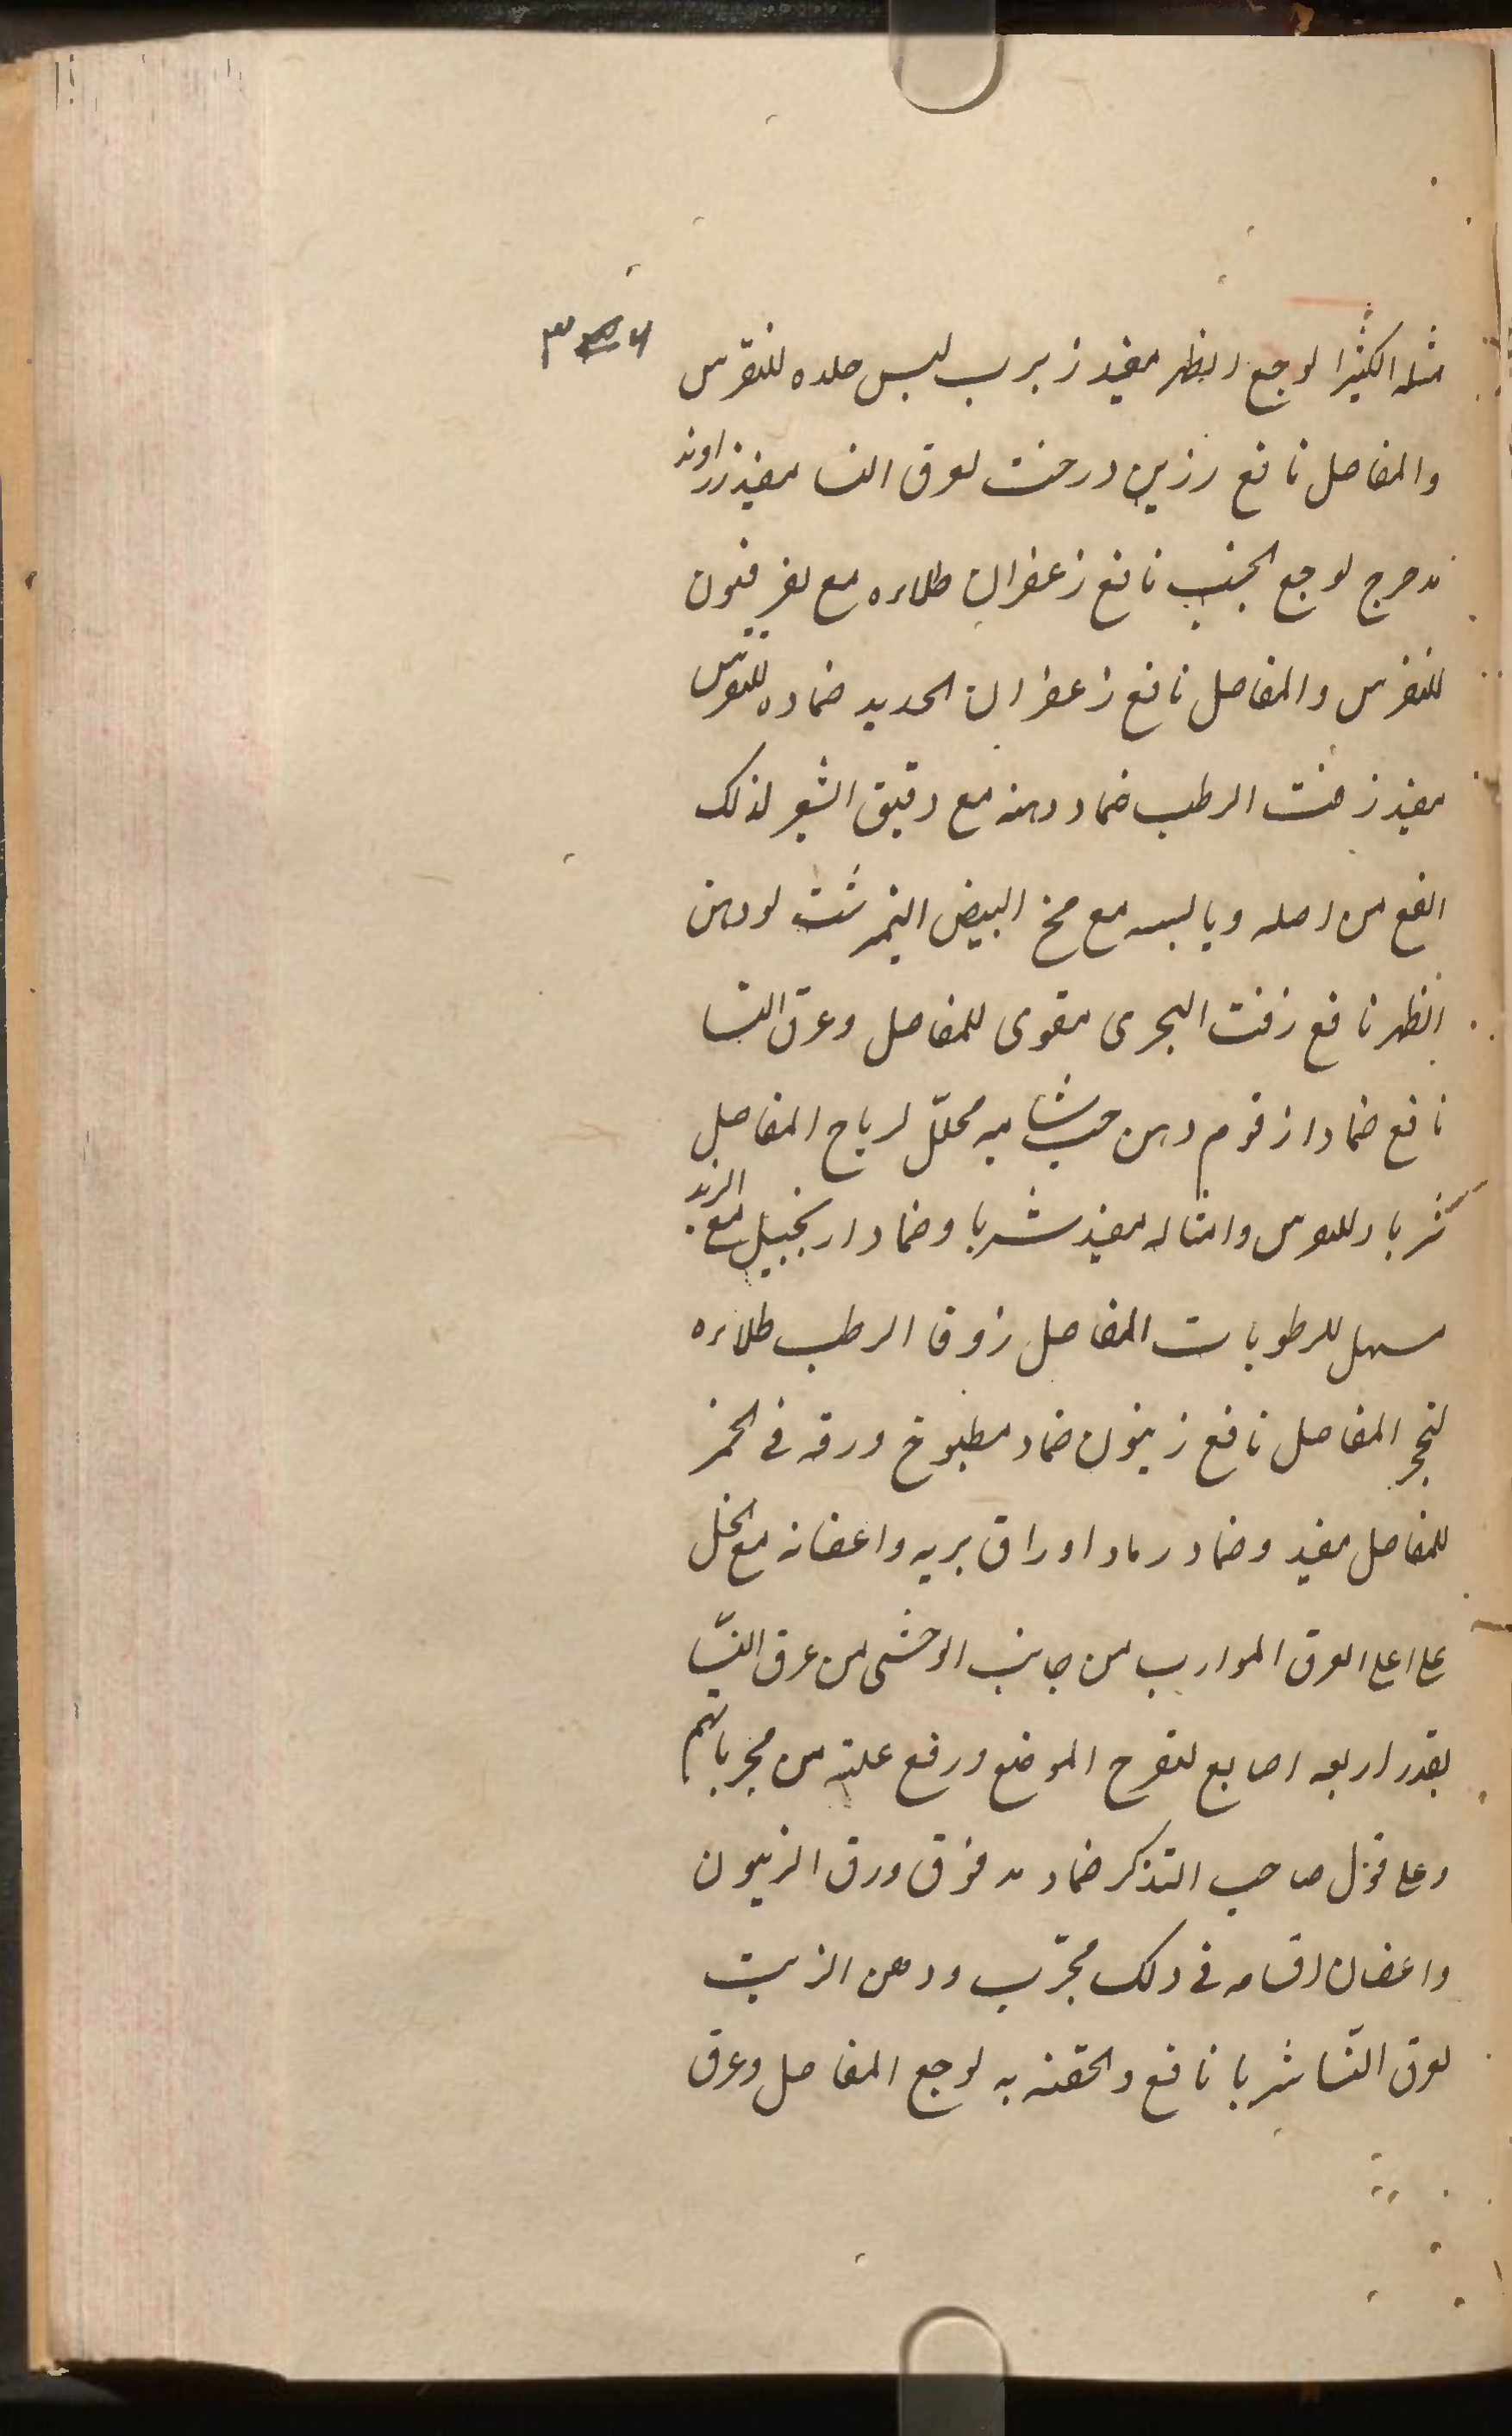 مثله الكثيرا لوجع الظهر مفيد زبرب لبس جلده للنقرس
والمفاصل نافع رزين درخت لعرق النسا مفيد زراوند
مدحرج لوجع الجنب نافع زعفران طلاءه مع فرفيون
للنقرس والمفاصل نافع زعفران الحديد ضماده للنقرس
مفيد زفت الرطب ضماد دهنه مع دقيق الشعير لذلك
انفع من اصله ويابسه مع مخ البيض النيمرشت لوهن
الظهر نافع زفت البحرى مقوى للمفاصل وعرق النسا
نافع ضمادا زقوم دهن حب شاميه محلّل لرياح المفاصل
شربا وللنقرس وامثاله مفيد شربا وضمادا زنجبيل مع التربد
مسهل للرطوبات المفاصل زوفا الرطب طلاءه
لتحجر المفاصل نافع زيتون ضماد مطبوخ ورقه فى الخمر
للمفاصل مفيد وضماد رماد اوراق بريه واغصانه مع الخل
على اعلى العرق الموارب من جانب الوحشى من عرق النسّا
بقدر اربعه اصابع لتقرح الموضع ورفع علته من مجرباتهم
وعلى قول صاحب التذكر ضماد مدقوق ورق الزيتون
واغصان اقسامه فى ذلك مجرّب ودهن الزيت
لعرق النّسا شربا نافع والحقنه به لوجع المفاصل وعرق